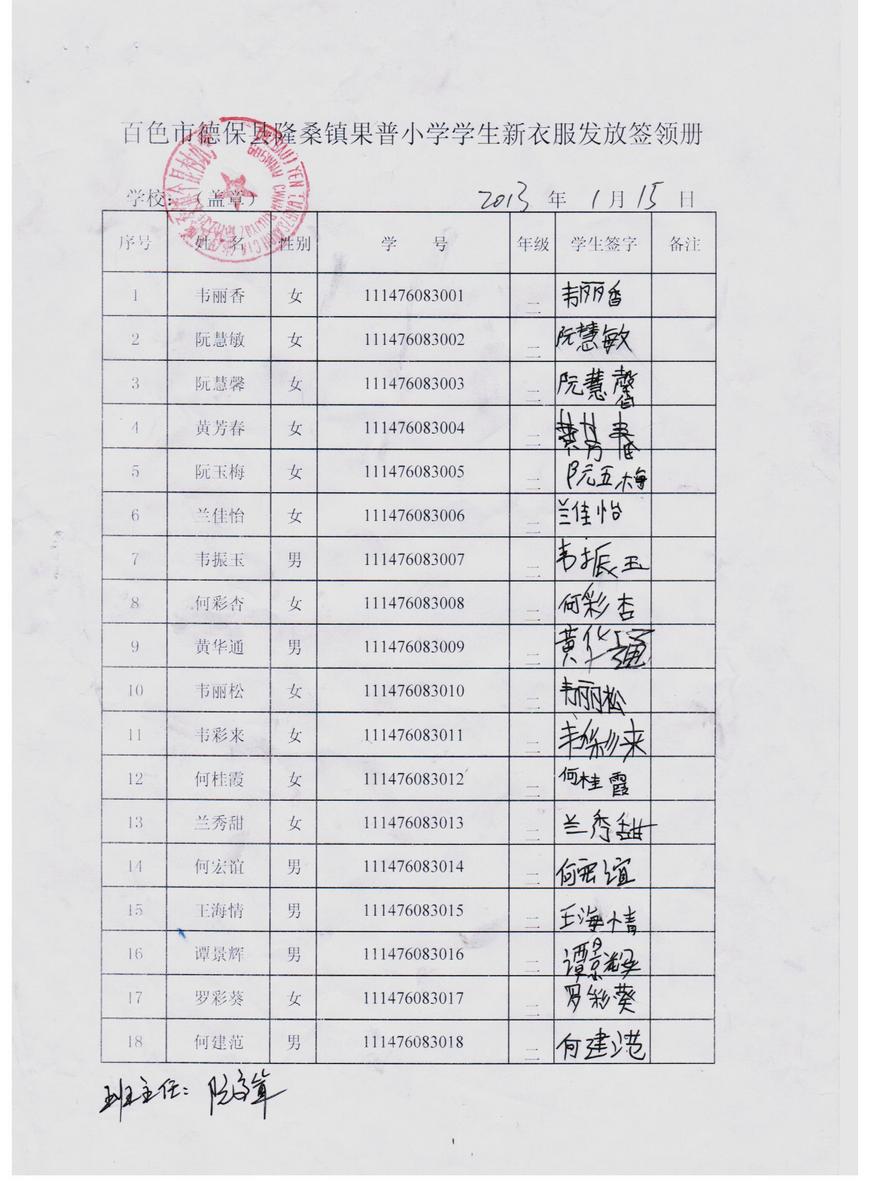 百色市德保县隆桑镇果普小学学生新衣服发放签领册
学校：（盖章） 2013 年 1 月 15 日
序号 姓 名 性别 学 号 年级 学生签字 备注
1 韦丽香 女 111476083001 二 韦丽香
2 阮慧敏 女 111476083002 二 阮慧敏
3 阮慧馨 女 111476083003 二 阮慧馨
4 黄芳春 女 111476083004 二 黄芳春
5 阮玉梅 女 111476083005 二 阮玉梅
6 兰佳怡 女 111476083006 二 兰佳怡
7 韦振玉 男 111476083007 二 韦振玉
8 何彩杏 女 111476083008 二 何彩杏
9 黄华通 男 111476083009 二 黄华通
10 韦丽松 女 111476083010 二 韦丽松
11 韦彩来 女 111476083011 二 韦彩来
12 何桂霞 女 111476083012 二 何桂霞
13 兰秀甜 女 111476083013 二 兰秀甜
14 何宏谊 男 111476083014 二 何宏谊
15 王海情 男 111476083015 二 王海情
16 谭景辉 男 111476083016 二 谭景辉
17 罗彩葵 女 111476083017 二 罗彩葵
18 何建范 男 111476083018 二 何建范
班主任： 阮
1